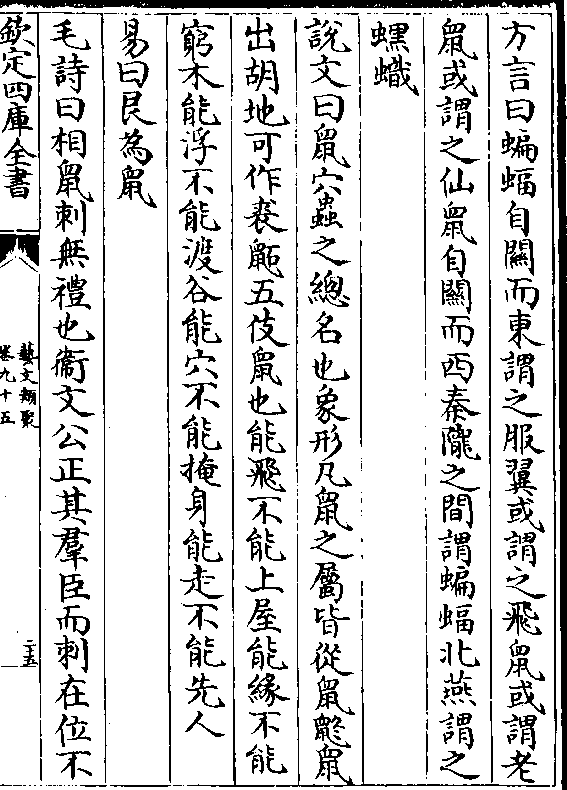 方言曰蝙蝠自關而東謂之服翼或謂之飛鼠或謂老
鼠或謂之仙鼠自關而西秦隴之間謂蝙蝠北燕謂之
蟔䘃
說文曰鼠穴蟲之總名也象形凡鼠之屬皆從鼠鼨鼠
出胡地可作裘鼫五伎鼠也能飛不能上屋能緣不能
窮木能浮不能渡谷能穴不能掩身能走不能先人
易曰艮為鼠
毛詩曰相鼠刺無禮也衞文公正其羣臣而刺在位不
欽定四庫全書
藝文類聚
卷九十五
二五